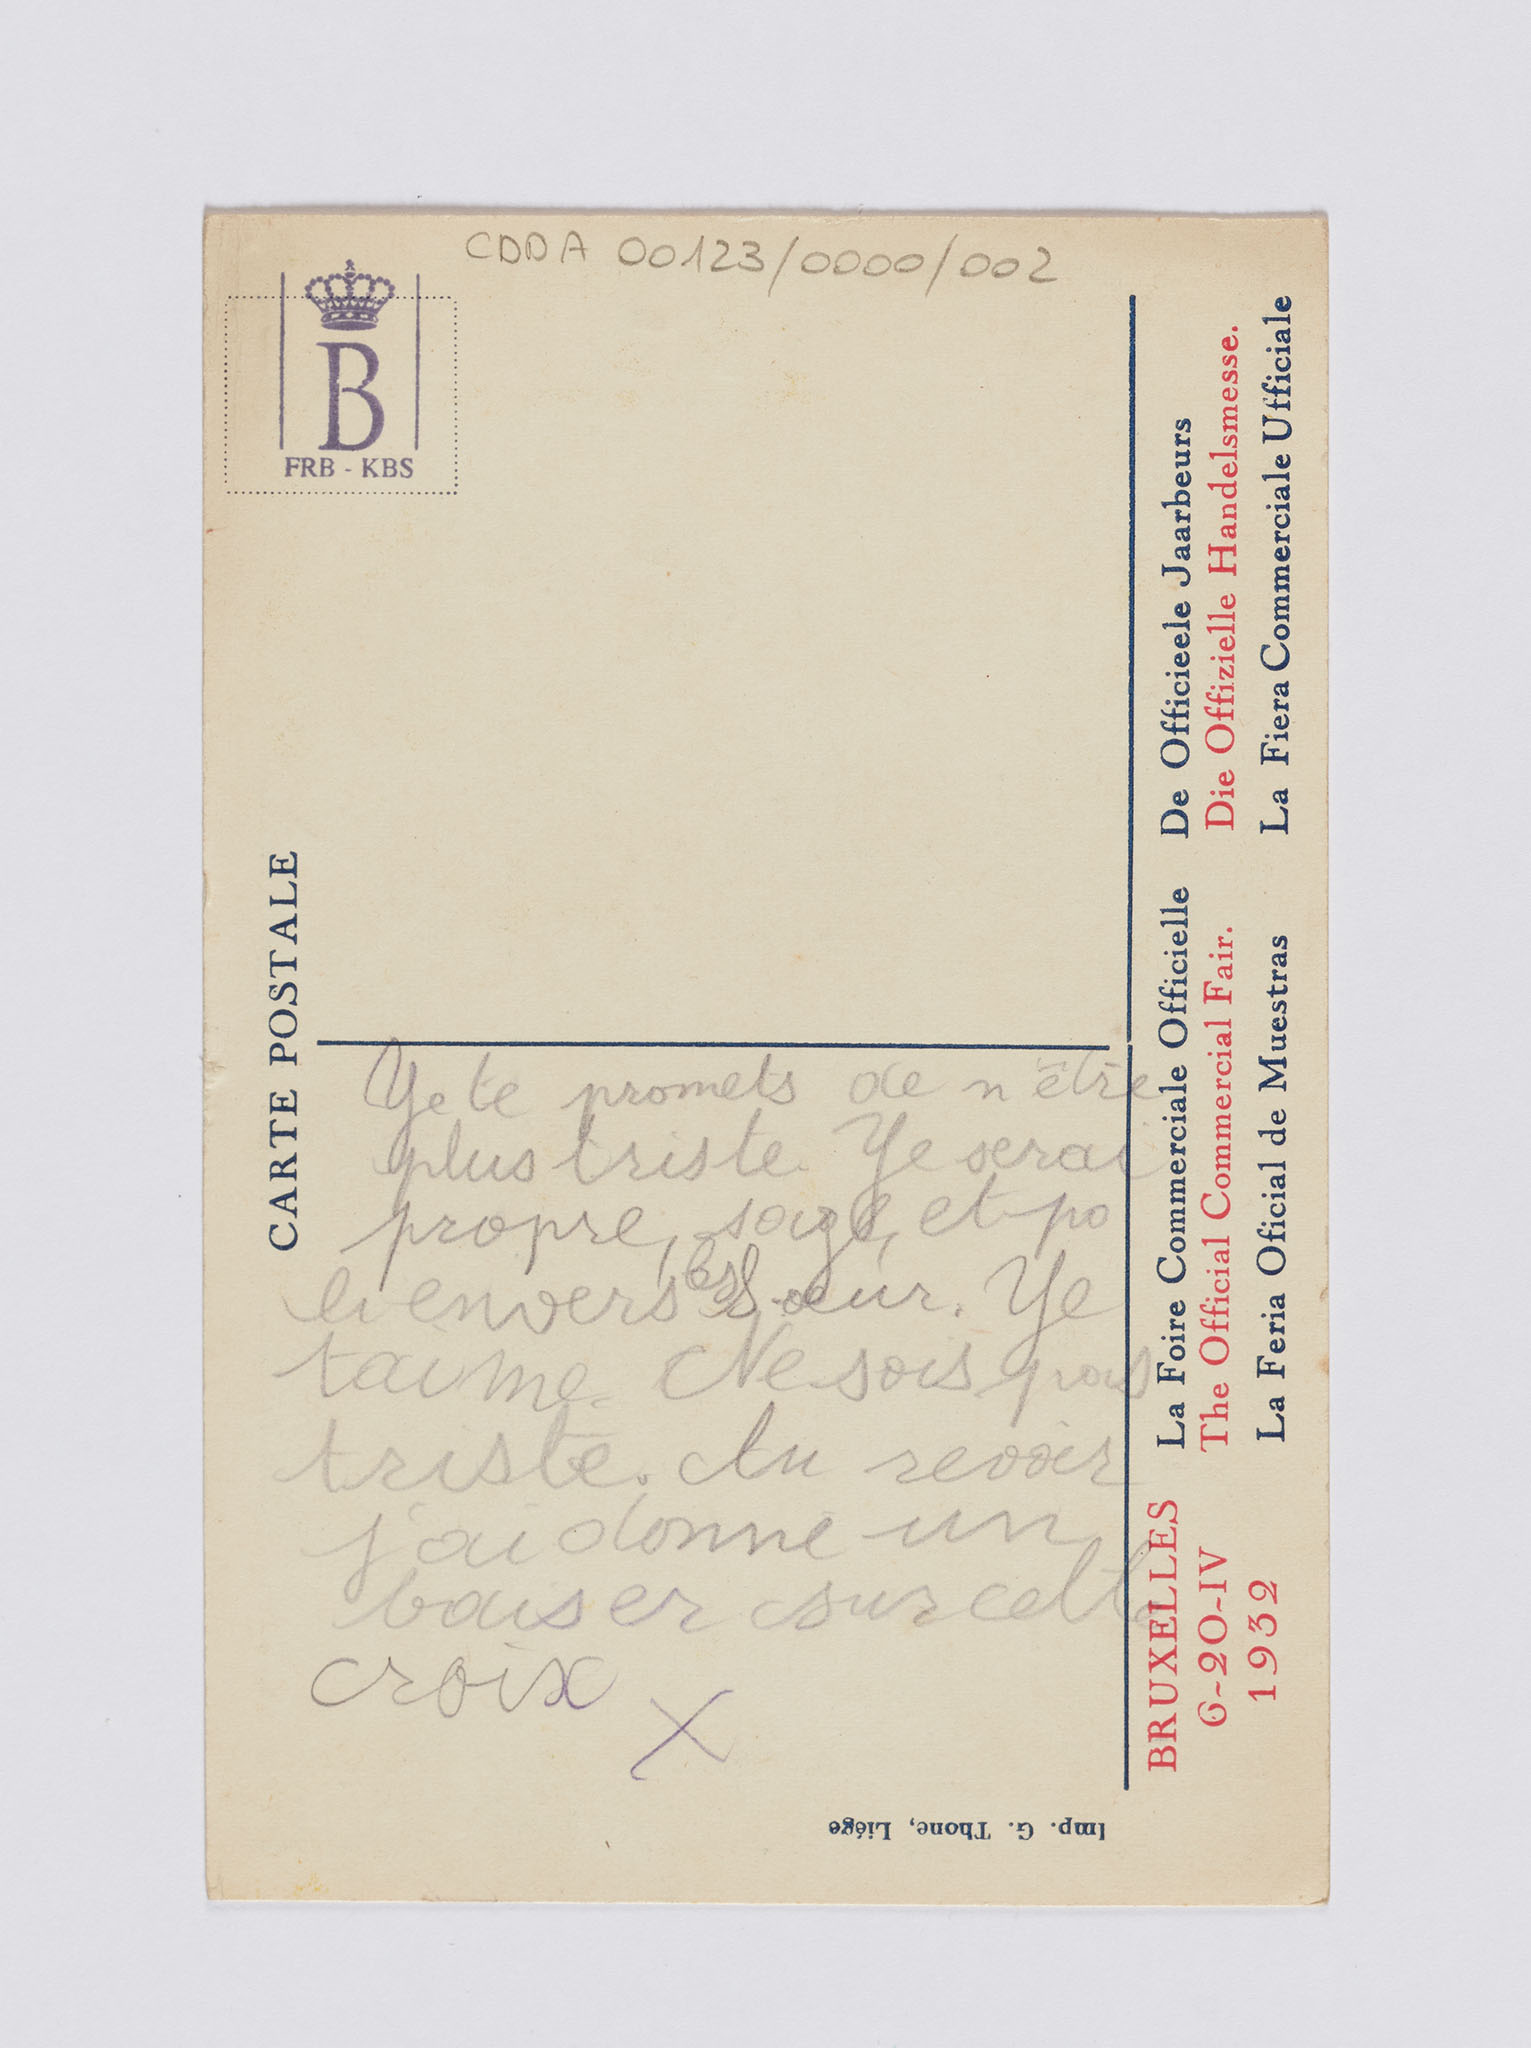 CDDA 00123/0000/002
B
FRB - KBS
CARTE POSTALE
Ye te promets de n'être
plus triste. Ye serai
propre, sage, et po
li envers les Sœur. Ye
taime. Ne sois pas
triste. Au revoir
j'ai donné un
baiser sur cette
croix
X
Imp. G. Thone, Liége
BRUXELLES
6-20-IV
1932
La Foire Commerciale Officielle De Officieele Jaarbeurs
The Official Commercial Fair. Die Offizielle Handelsmesse.
La Feria Oficial de Muestras La Fiera Commerciale Ufficiale